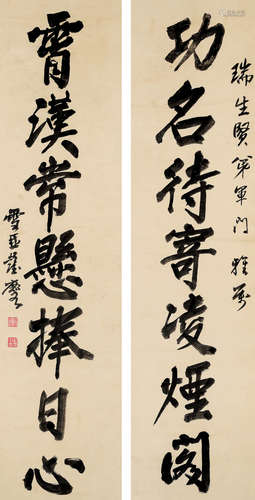 瑞生賢弟軍門雅屬
功名待寄凌煙閣
霄漢常懸捧日心
雪巫